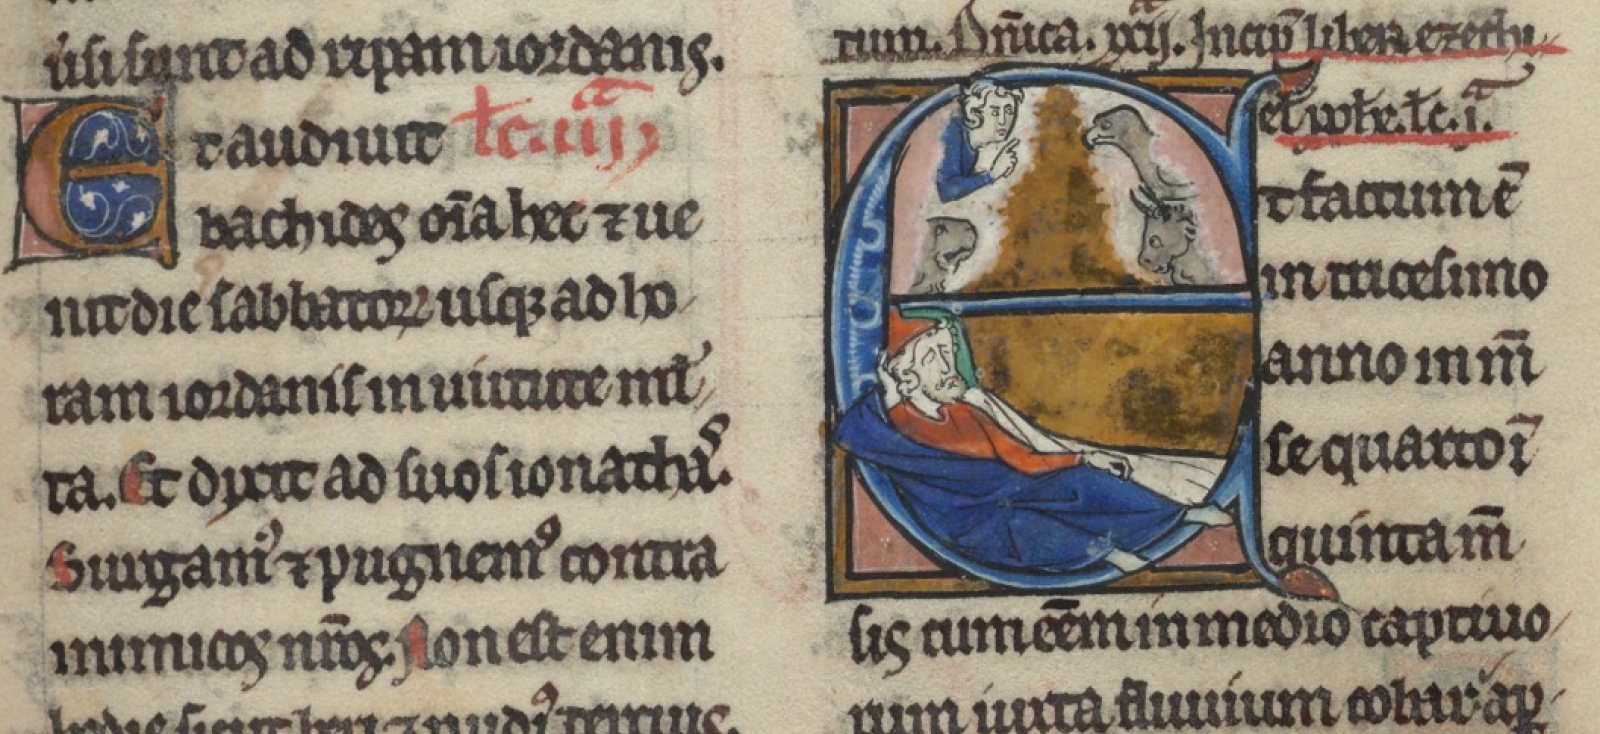 uisi sunt ad ripam iordanis.
Et audiuit lc̄. iiij.
bachides oīa hec ⁊ ue
nit die sabbatoꝝ usqꝫ ad ho
ram iordanis in uirtute ml̄
ta. Et dixit ad suos ionathas.
Surgamꝰ ⁊ pugnemꝰ contra
inimicos nr̄os. Non est enim
hodie sicut heri ⁊ nudiꝰ tercius.
tum. Dn̄ica. xxij. Incip̄ liber ezechi
el ꝓph̄e. lc̄. i.
Et factum ē
in tricesimo
anno in m̄
se quarto ī
quinta m̄
sis cum eēm in medio captiuo
rum iuxta fluuium cobar aꝑ